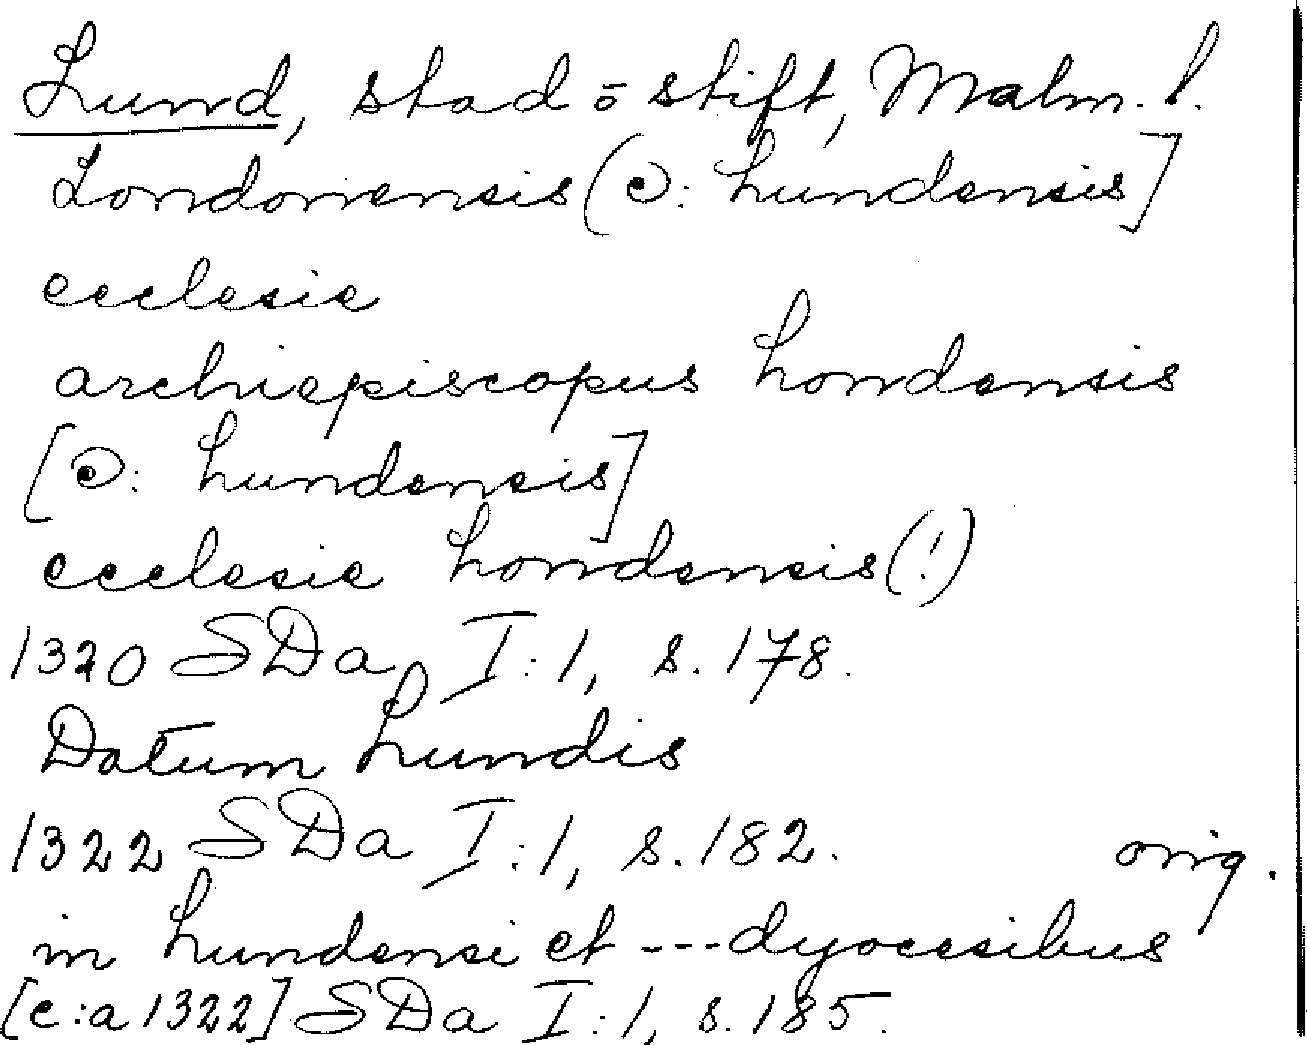 Lund, stad o stift, Malm. l.
Londoniensis (ɔ: Lundensis]
ecclesie
archiepiscopus Londensis
[ɔ: Lundensis]
ecclesie Londensis (!)
1320 SDa I:1, s. 178.
Datum Lundis
1322 SDa I:1, s. 182. orig.
in Lundensi et --- dyocesibus
[c:a 1322] SDa I:1, s. 185.